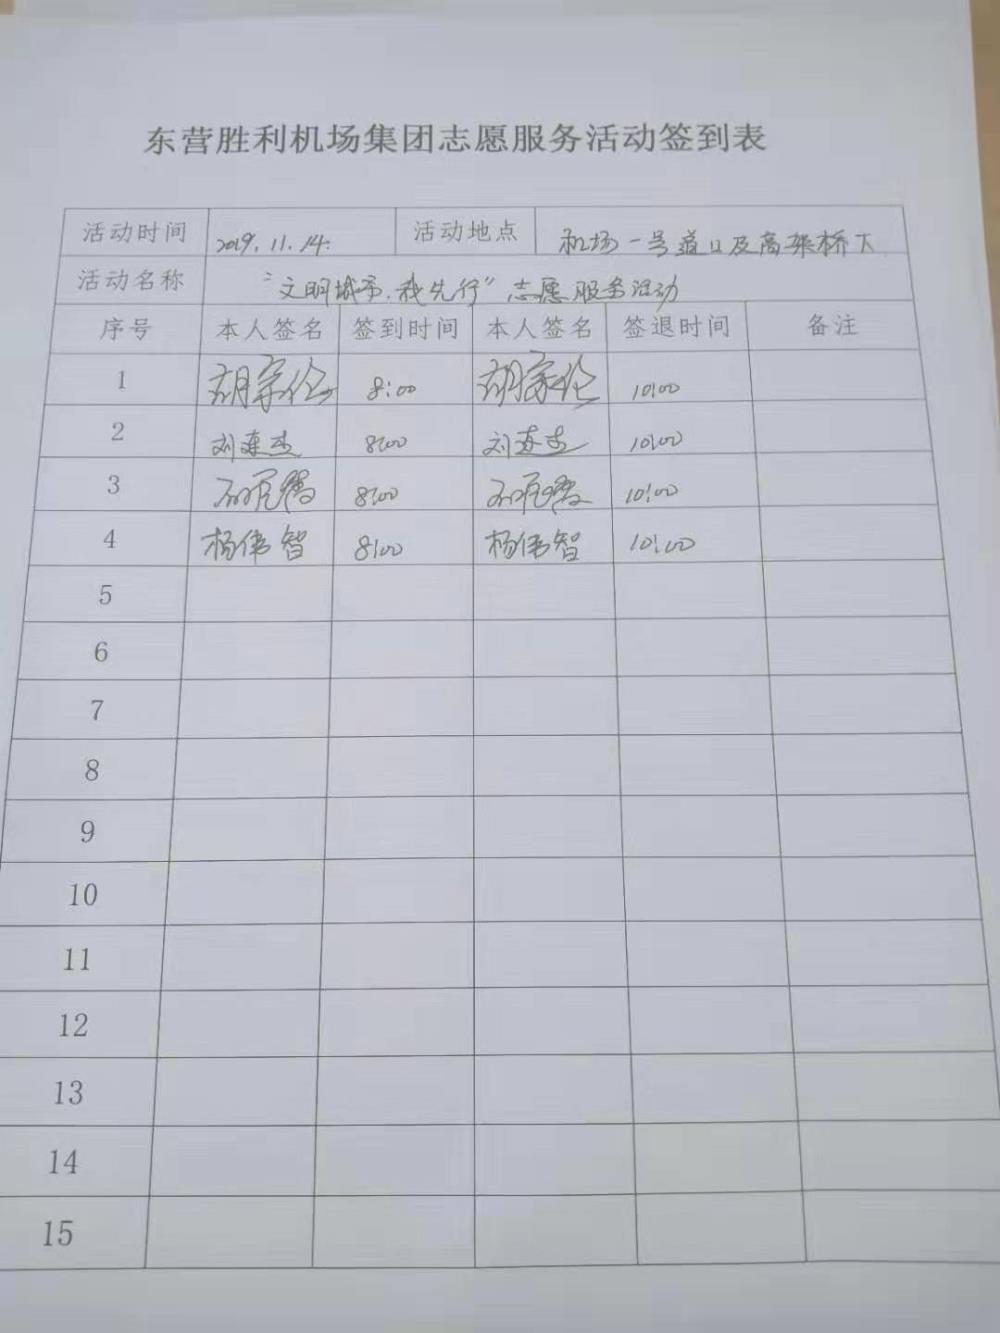 东营胜利机场集团志愿服务活动签到表
活动时间 2019.11.14. 活动地点 机场一号道口及高架桥下
活动名称 "文明城市.我先行"志愿服务活动
序号 本人签名 签到时间 本人签名 签退时间 备注
1 胡家伦 8:00 胡家伦 10:00
2 刘连杰 8:00 刘连杰 10:00
3 8:00 10:00
4 杨伟智 8:00 杨伟智 10:00
5
6
7
8
9
10
11
12
13
14
15